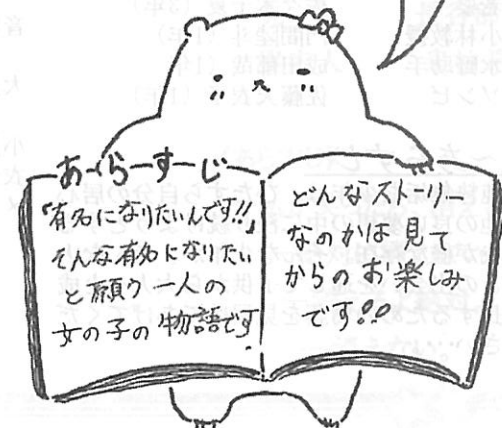 あーらーすーじ
「有名になりたいんです!!」
そんな有名になりたい
と願う一人の
女の子の物語です
どんなストーリー
なのかは見て
からのお楽しみ
です!!